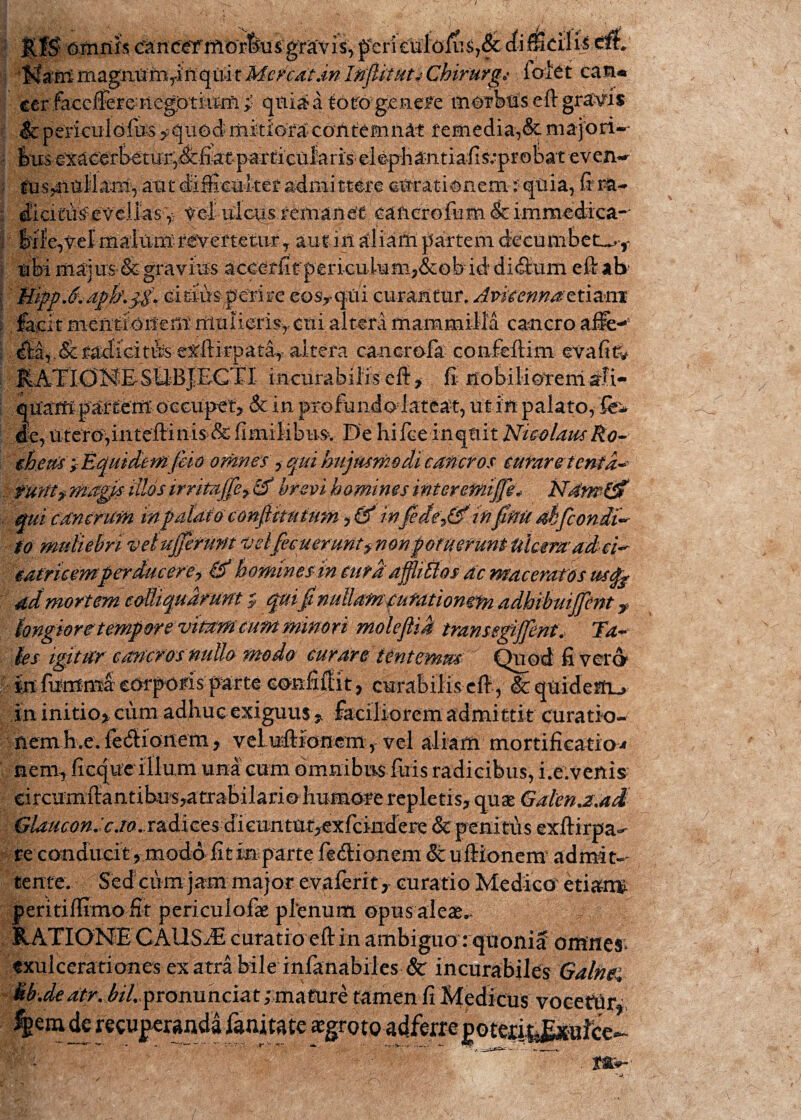 RIS omnis cancer morbus gravis, periculosus, & difficilis est.
Nam magnum, inquit Mercat. in Institut. Chirurg. solet can-
cer facessere negotium; quia à toto genere morbus est gravis
& periculosus, quod mitiora contemnat remedia, & majori-
bus exacerbetur, & fiat particularis elephantiasis: probat even-
tus, nullam, aut difficulter admittere curationem: quia, si ra-
dicitus evellas, vel ulcus remanet cancrosum & immedica-
bile, vel malum revertetur, aut in aliam partem decumbet,
ubi majus & gravius accersit periculum, & ob id dictum est ab
Hipp. 6. aph. 38. citius perire eos, qui curantur. Avicenna etiam
facit mentionem mulieris, cui altera mammilla cancro affe-
cta, & radicitus exstirpata, altera cancrosa confestim evasit.
RATIONE SUBJECTI incurabilis est, si nobiliorem ali-
quam partem occupet, & in profundo lateat, ut in palato, se-
de, utero, intestinis & similibus. De hisce inquit Nicolaus Ro-
cheus; Equidem scio omnes, qui hujusmodi cancros curare tenta-
runt, magis illos irritasse, & brevi homines interemisse. Nam &
qui cancrum in palato constitutum, & in sede, & in sinu abscondi-
to muliebri vel usserunt vel secuerunt, non potuerunt ulcera ad ci-
catricem perducere, & homines in cura afflictos ac maceratos usq;
ad mortem colliquarunt; qui si nullam curationem adhibuissent,
longiore tempore vitam cum minori molestia transegissent. Ta-
les igitur cancros nullo modo curare tentemus Quod si verò
in summa corporis parte consistit, curabilis est, & quidem
in initio, cùm adhuc exiguus, faciliorem admittit curatio-
nem h.e. sectionem, vel ustionem, vel aliam mortificatio-
nem, sicque illum unà cum omnibus suis radicibus, i.e. venis
circumstantibus, atrabilario humore repletis, quæ Galen. 2. ad
Glaucon. c. 10. radices dicuntur, exscindere & penitùs exstirpa-
re conducit, modò sit in parte sectionem & ustionem admit-
tente. Sed cùm jam major evaserit, curatio Medico etiam
peritissimo fit periculosæ plenum opus aleæ.
RATIONE CAUSÆ curatio est in ambiguo: quonia omnes
exulcerationes ex atrâ bile insanabiles & incurabiles Galne;
lib. de atr. bil. pronunciat; maturè tamen si Medicus vocetur,
spem de recuperanda sanitate ægroto adferre poterit. Exulce-
ra-